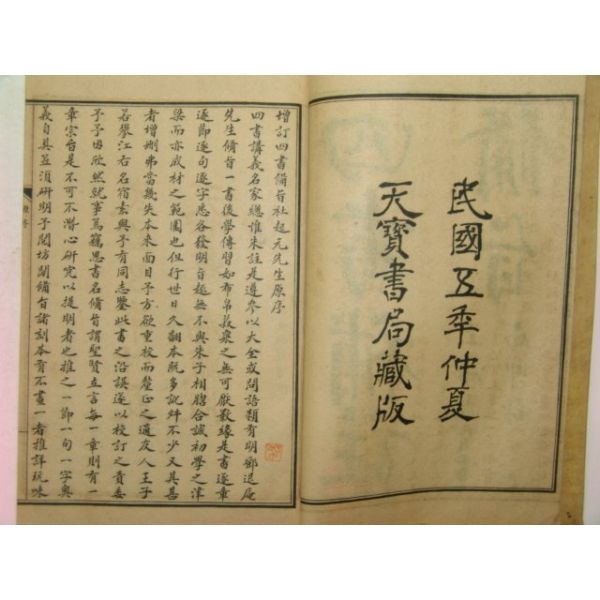 民國五年仲夏
天寶書局藏版
增訂四書備旨杜起元先生原序
四書講義名家總惟朱註是遵參以大全或問語類有明鄧退庵
先生備旨一書後學傳習如布帛菽粟之無可厭斁緣是書逐章
逐節逐句逐字悉谷發明旨趣無不與朱子相脗合誠初學之津
梁而亦成材之範圍也但行世日久翻本既多訛舛不少又其甚
者增刪弗當幾失本來面目予方欲重梭而釐正之適友人王子
若攀江右名宿素與予有同志鑒此書之沿誤遂以校訂之責委
予予因欣然就事焉竊思書名備旨謂聖賢立言每一章則有一
章宗旨是不可不潛心研究以提明者也推之一節一句一字奧
義自具並須研明予閱坊間備旨諸刻本旨不盡一者推詳玩味